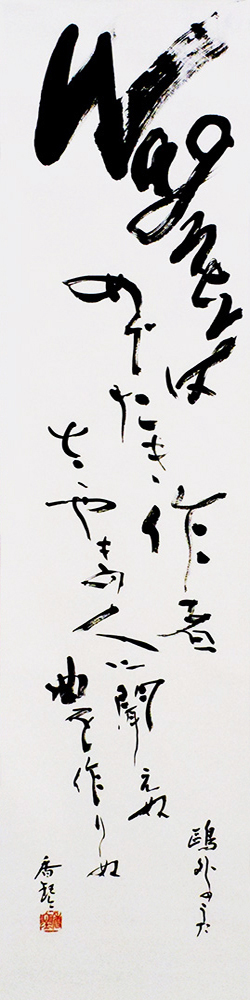 Wagnerは
めでたき作者
さゝやきの人に聞えぬ
曲を作りぬ
鷗外のうた